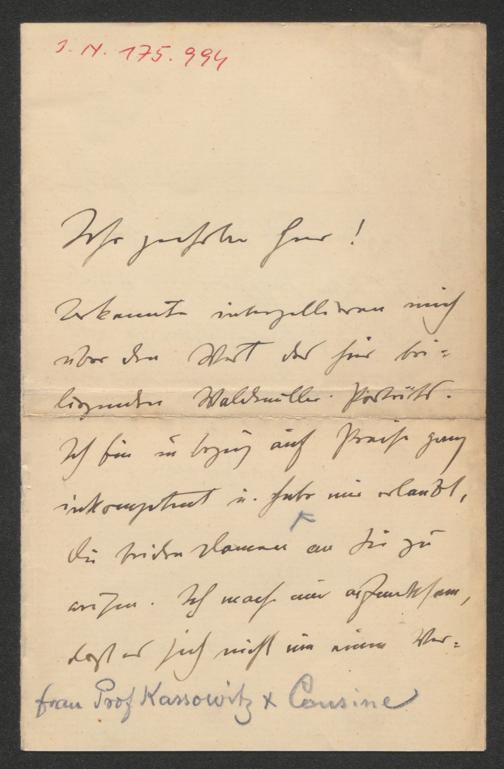 J. N. 175.994
Sehr geehrter Herr!
Bekannte interpellieren mich
über den Wert des hier bei=
liegenden Waldmüller-Porträts.
Ich bin in bezug auf Preise ganz
inkompetent u. habe mir erlaubt,
die beiden Damen an Sie zu
weisen. Ich mache nur aufmerksam,
dass es sich nicht um einen Ver=
Frau Prof Kassowitz x Cousine